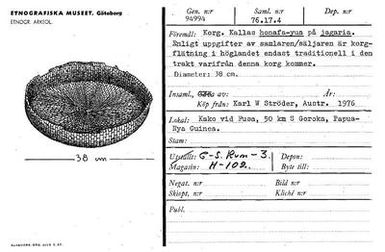 ETNOGRAFISKA MUSEET. Göteborg
ETNOGR. ARKEOL.
38 cm
Gen. n:r 94994
Saml. n:r 76.17.4
Dep. n:r
Föremål: Korg. Kallas honafa-yua på jagaria.
Enligt uppgifter av samlaren/säljaren är korg-
flätning i höglandet endast traditionell i den
trakt varifrån denna korg kommer.
Diameter: 38 cm.
Insaml. av: År:
Köp från: Karl W Ströder, Austr. 1976
Lokal: Kako vid Fusa, 50 km S Goroka, Papua-
Nya Guinea.
Stam:
Utställt: G-S. Rum-3. Depon:
Magasin: H-102. Byte till:
Negat. n:r Bild n:r
Skiopt. n:r Kliché n:r
Publ.